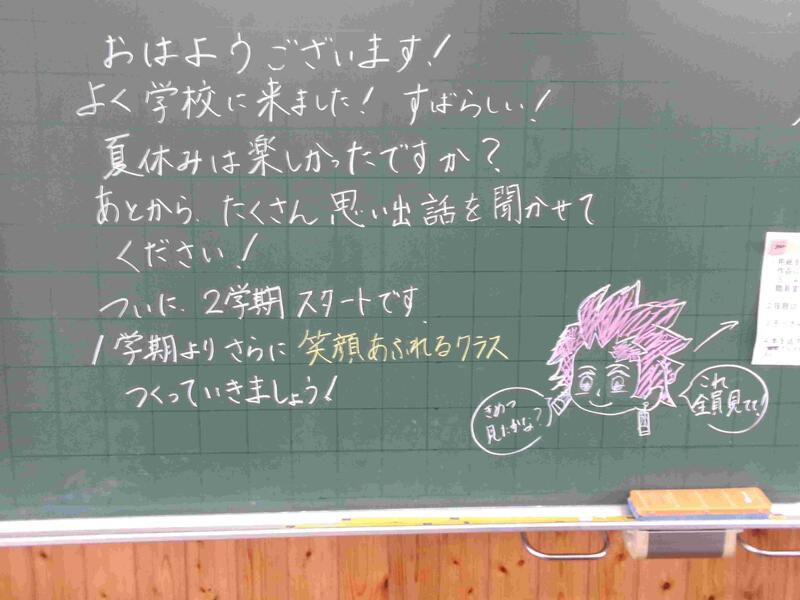 おはようございます!
よく学校に来ました! すばらしい!
夏休みは楽しかったですか?
あとから、たくさん思い出話を聞かせて
ください!
ついに、2学期スタートです。
1学期よりさらに笑顔あふれるクラス
つくっていきましょう!
きめつ
見たかな?
これ
全員見てて!